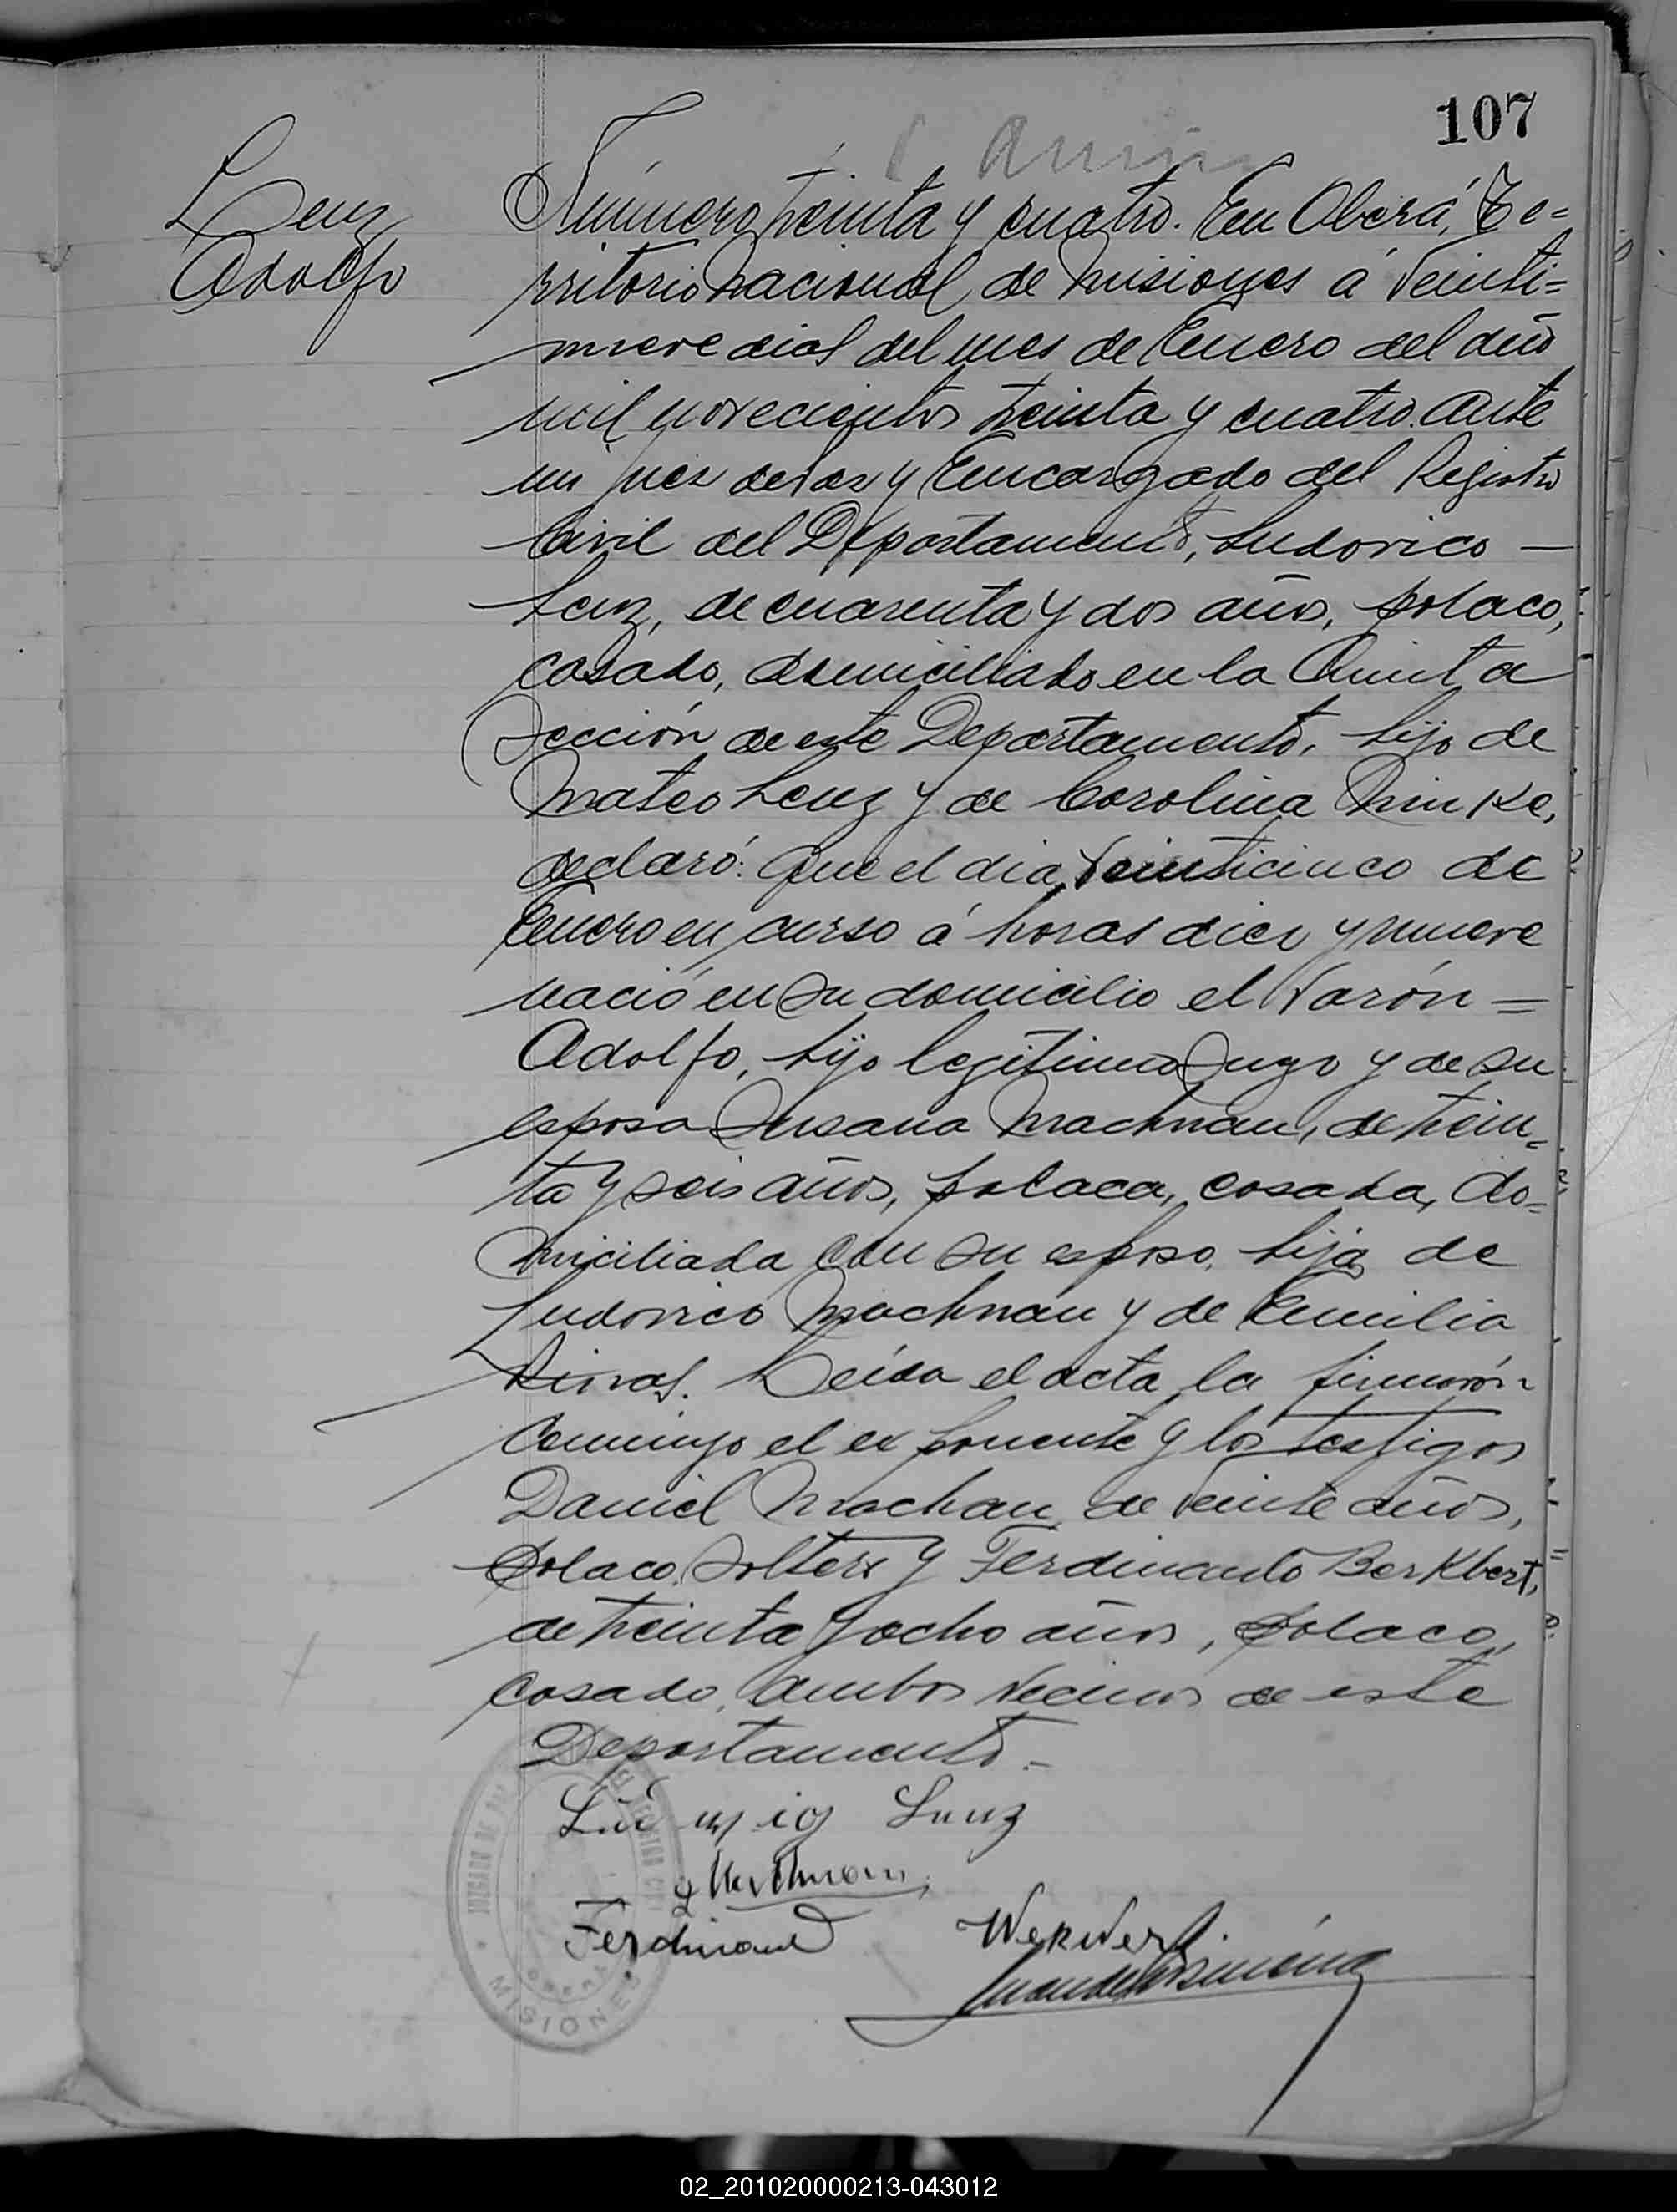 107
Lenz
Adolfo
Número treinta y cuatro. En Oberá, Te=
rritorio Nacional de Misiones á veinti=
nueve dias del mes de Enero del año
mil novecientos treinta y cuatro. Ante
mi juez de Paz y Encargado del Registro
Civil del Departamento, Ludovico —
Lenz, de cuarenta y dos años, polaco,
casado, domiciliado en la Quinta
Sección de este Departamento, hijo de
Mateo Lenz y de Carolina Rinke,
declaró: Que el dia veinticinco de
Enero en curso á horas diez y nueve
nació en su domicilio el varón =
Adolfo, hijo legítimo suyo y de su
esposa Susana Machnau, de trein=
ta y seis años, polaca, casada, do=
miciliada con su esposo, hija de
Ludovico Machnau y de Emilia
Leída el acta la firmarón
conmigo el exponente y los testigos
Daniel Machau de veinte años,
polaco, soltero y Ferdinando Berkbert,
de treinta y ocho años, polaco,
casado, ambos vecinos de este
Departamento.-
Ludwig Lenz
Ferdinand
JUZGADO DE PAZ
MISIONES
02_201020000213-043012